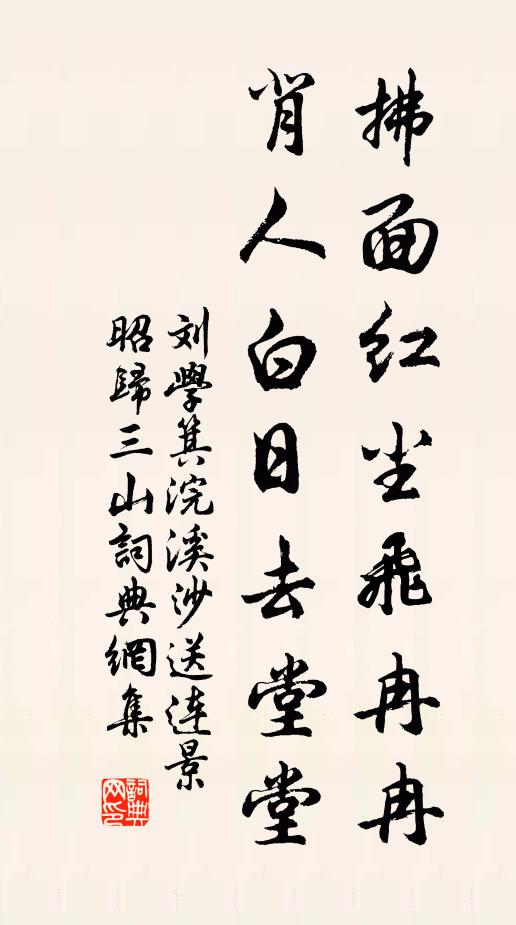 拂面红尘飛冉冉
背人白日去堂堂
刘學箕浣溪沙送连景
昭歸三山詞典網集
詞典网印